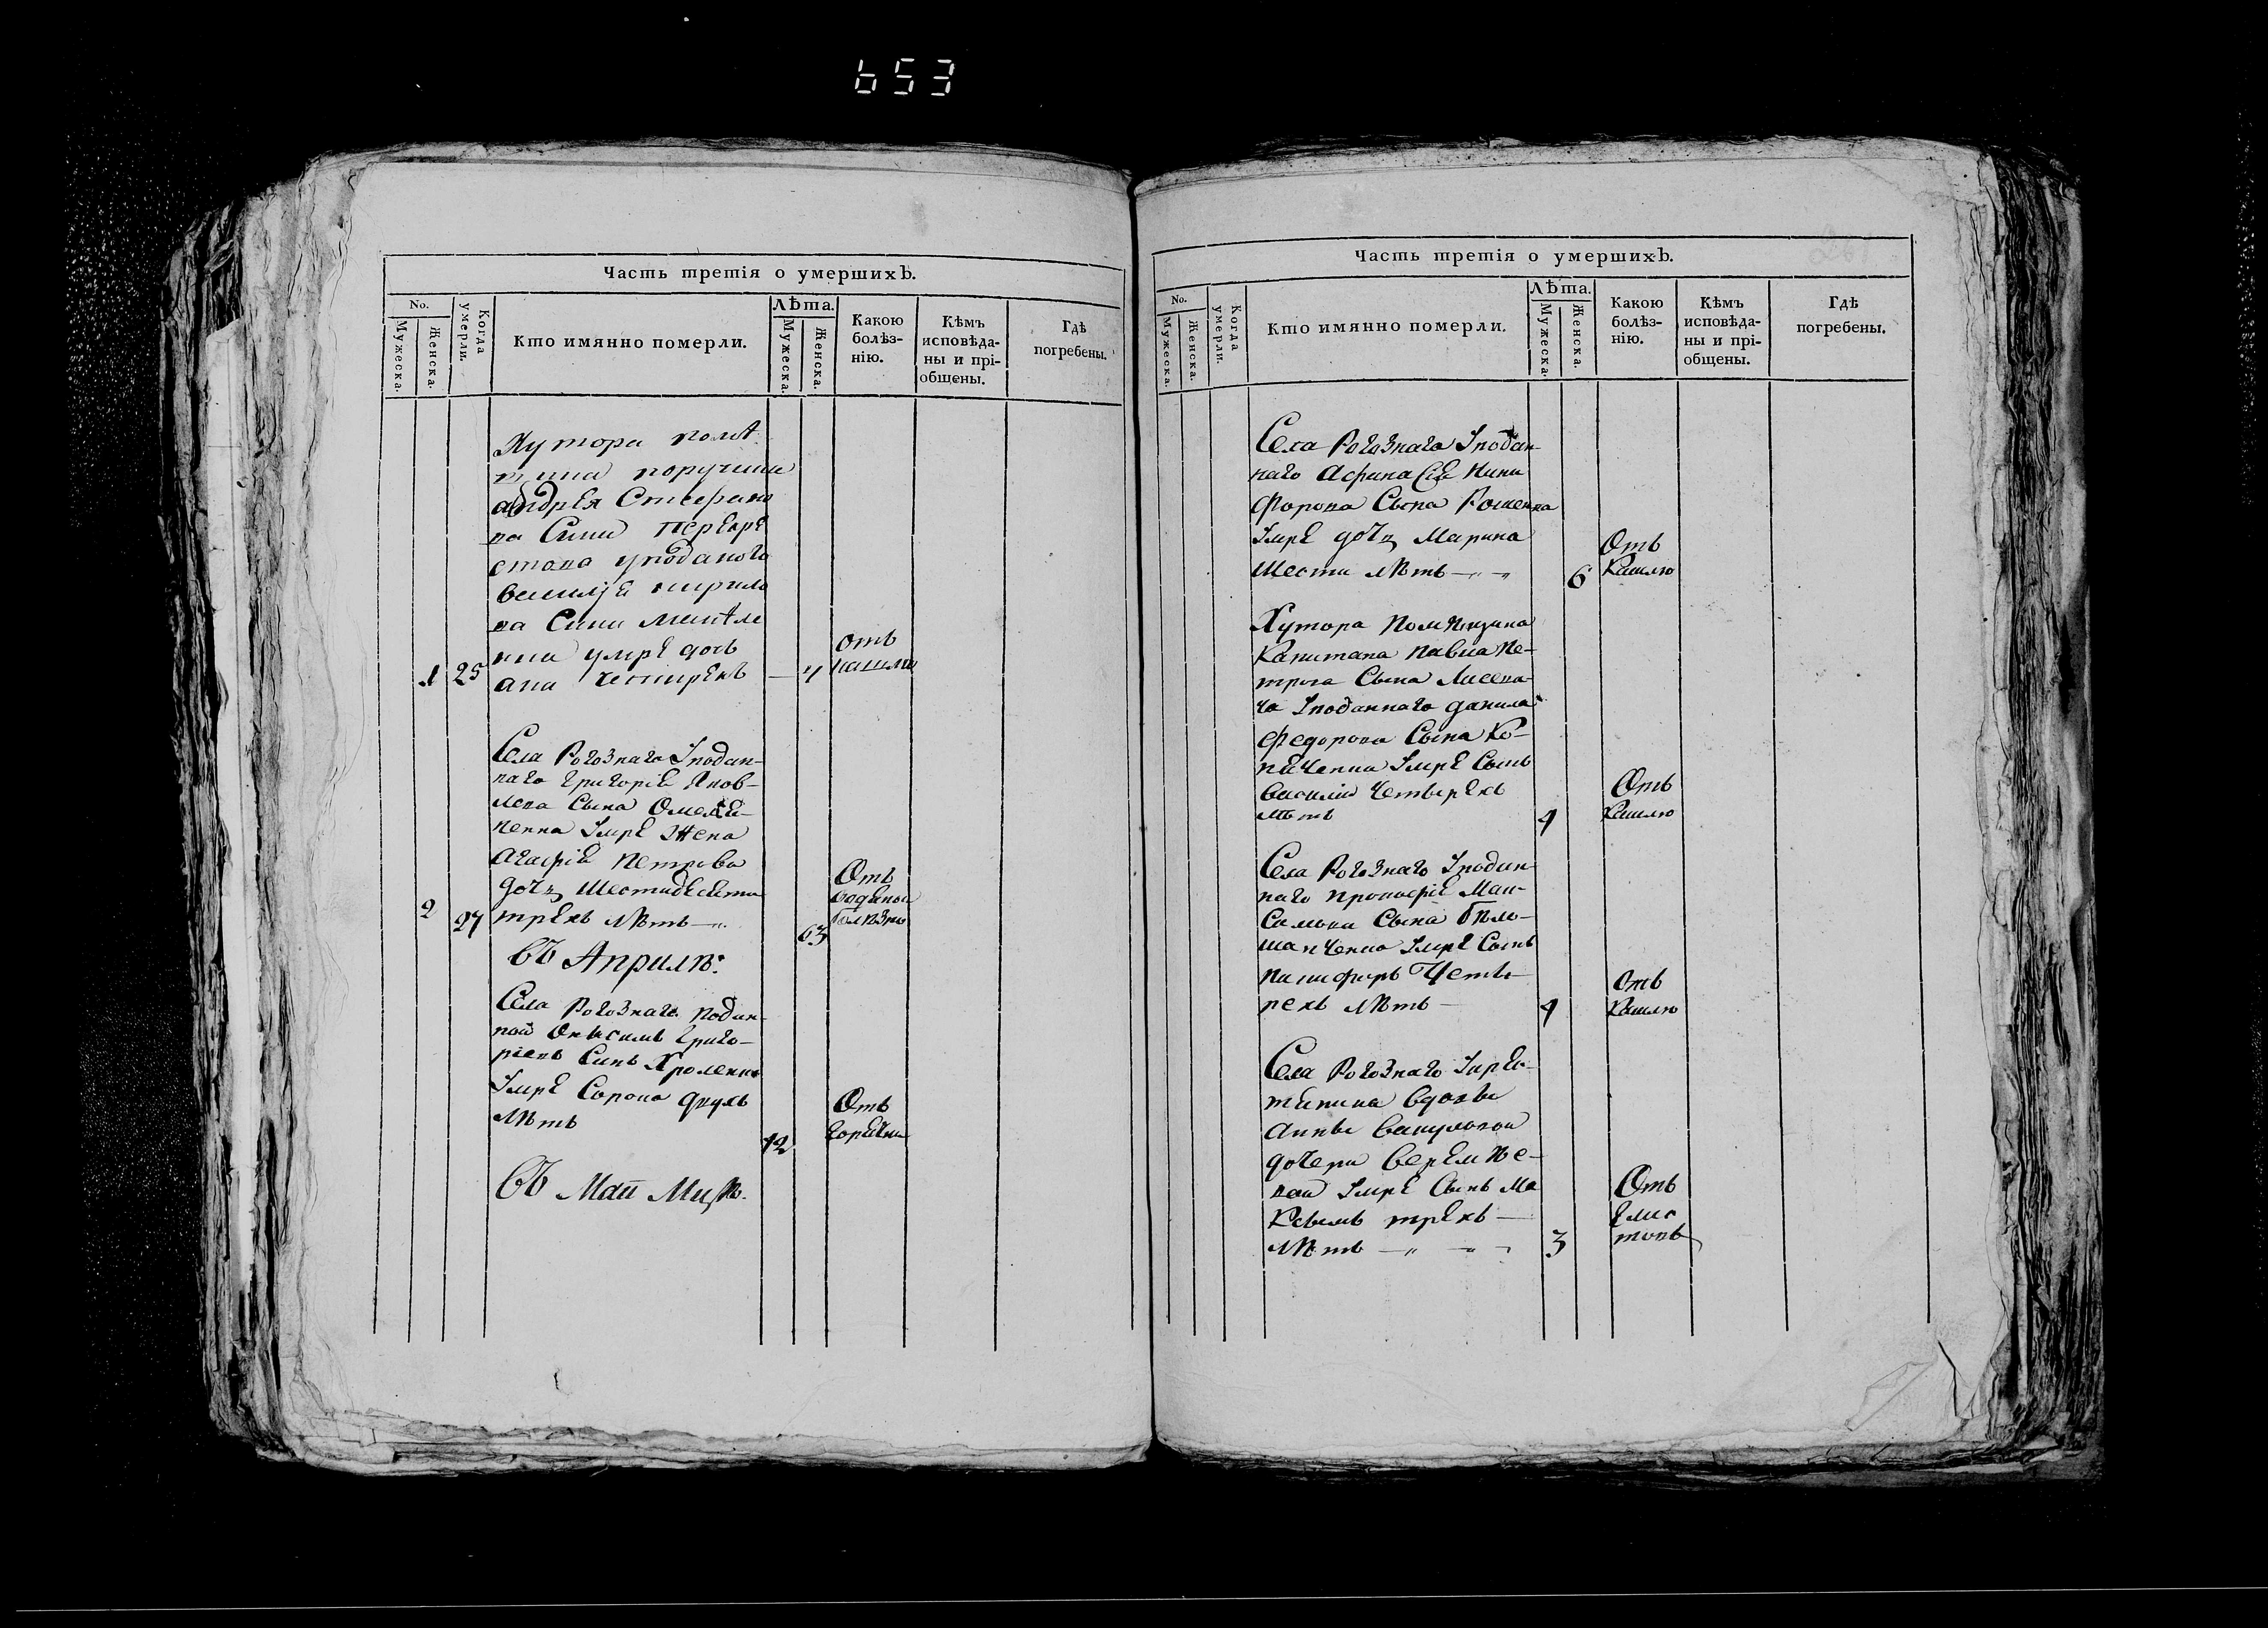 653
Часть третія о умершихъ.
No.
Мужеска.
Женска.
Когда умерли.
Кто имянно померли.
Лѣта.
Мужеска.
Женска.
Какою болѣз-
нію.
Кѣмъ
исповѣда-
ны и прі-
общены.
Гдѣ
погребены.
Хутора помѣ
щика поручика
андрея Стефано
ва Сина Перекре
стова уподаного
василія кирило
ва Сина
умре дочь
1 25 ана четирехъ — 4
отъ
кашлю
Села Рогознаго Уподан-
наго григорія Яков-
лева Сына Омеле-
ченка Умре Жена
агафія Петрова
дочь Шестидесети
2 27 трехъ лѣтъ — 63
Отъ
водяной
болѣзни
Въ Априлѣ:
Села Рогознаго подан-
ной Онисимъ григо-
ріевъ Синъ Хроленко
Умре Сорока двухъ
лѣтъ 42
Отъ
горячки
Въ Маи Мцѣ.
Часть третія о умершихъ.
No.
Мужеска.
Женска.
Когда умерли.
Кто имянно померли.
Лѣта.
Мужеска.
Женска.
Какою
болѣз-
нію.
Кѣмъ
исповѣда-
ны и прі-
общены.
Гдѣ
погребены.
Села Рогознаго Уподан-
наго Афанасія Ники
форова Сына
Умре дочь Марина
шести лѣтъ — 6
Отъ
Кашлю
Хутора Помѣщика
Капитана Павла Пе-
трова Сына Лисева-
го Уподаннаго данила
Федорова Сына Ко-
Умре Сынъ
василій Четырехъ
лѣтъ 4
Отъ
Кашлю
Села Рогознаго Уподан-
наго прокофія Мак-
симова Сына
Умре Сынъ
никифоръ Четы-
рехъ лѣтъ — 4
Отъ
Кашлю
Села Рогознаго
вдовы
анны
дочери
вой Умре Сынъ Ма
Ксимъ трехъ —
лѣтъ — 3
Отъ